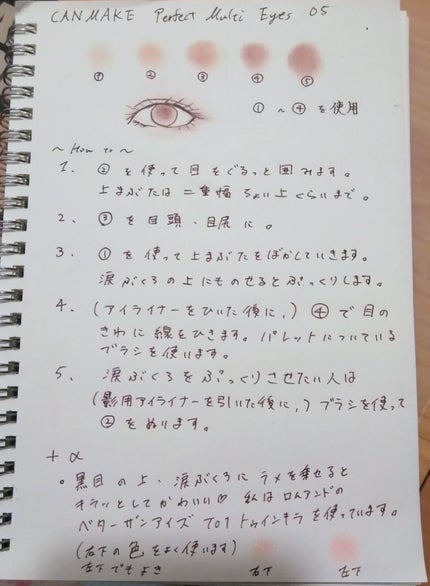 CANMAKE Perfect Multi Eyes 05
① ② ③ ④ ⑤
①〜④を使用
〜How to〜
1. ②を使って目をぐるっと囲みます。
上まぶたは二重幅ちょい上くらいまで。
2. ③を目頭・目尻に。
3. ①を使って上まぶたをぼかしていきます。
涙ぶくろの上にものせるとぷっくりします。
4. (アイライナーをひいた後に、) ④で目の
きわに線をひきます。パレットについている
ブラシを使います。
5. 涙ぶくろをぷっくりさせたい人は
(影用アイライナーを引いた後に、) ブラシを使って
②をぬります。
+α
。黒目の上・涙ぶくろにラメを乗せると
キラッとしてかわいい♡ 私はロムアンドの
ベターザンアイズ T01 トゥインキラを使っています。
(右下の色をよく使います)
左下でもよき 右下 左下